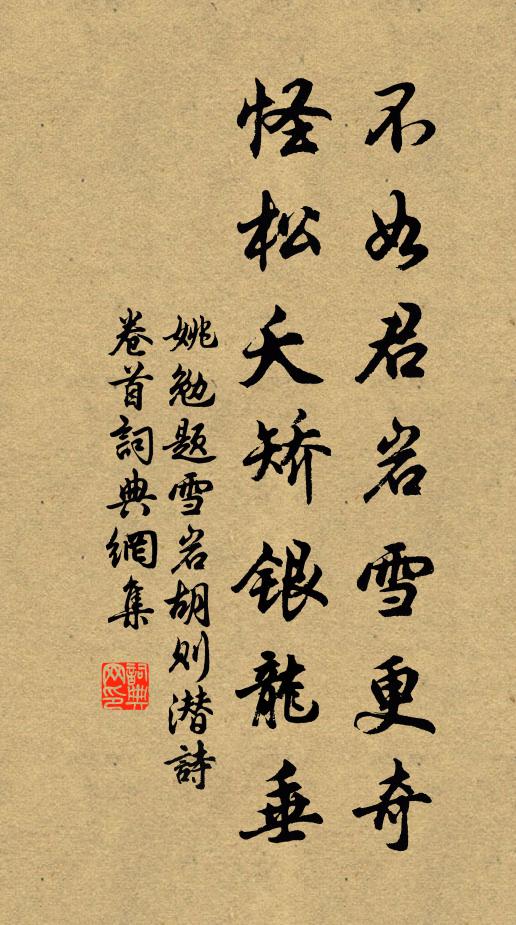 不如君岩雪更奇
怪松夭矯銀龍垂
姚勉題雪岩胡则潜詩
卷首詞典網集
詞典
网印